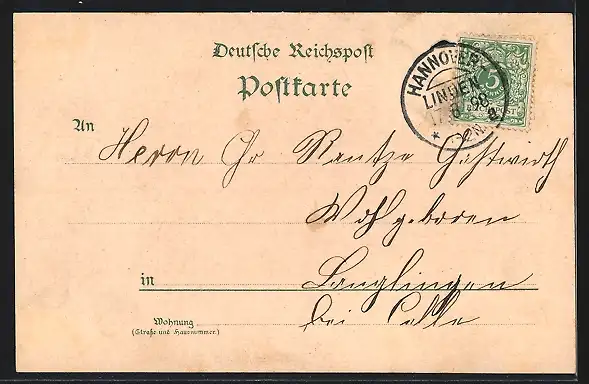 Deutsche Reichspost
Postkarte
HANNOVER
LINDEN
17. 98
5
An Herrn Chr Rautze Gastwirth
Wohlgeboren
in Langlingen
Wohnung bei Celle
(Straße und Hausnummer.)